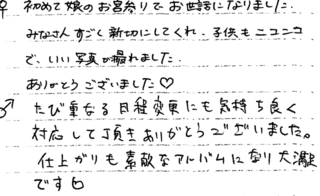 ♀ 初めて娘のお宮参りでお世話になりました.
みなさんすごく親切にしてくれ、子供もニコニコ
で、いい写真が撮れました.
ありがとうございました♡
♂ たび重なる日程変更にも気持ち良く
対応して頂きありがとうございました。
仕上がりも素敵なアルバムになり大満足
です